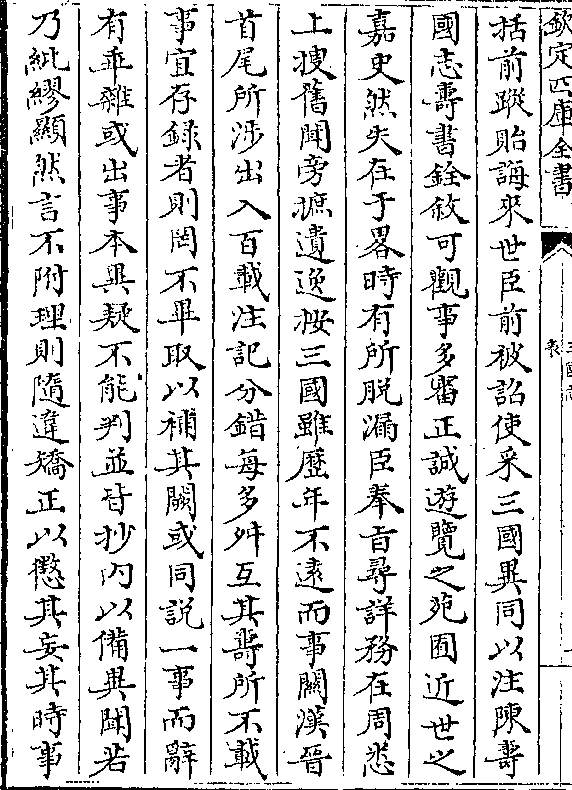 欽定四庫全書
三國志
表
一
括前蹤貽誨來世臣前被詔使采三國異同以注陳壽
國志壽書銓敘可觀事多審正誠遊覽之苑囿近世之
嘉史然失在于畧時有所脱漏臣奉旨尋詳務在周悉
上搜舊聞旁摭遺逸按三國雖歷年不遠而事關漢晉
首尾所涉出入百載注記分錯每多舛互其壽所不載
事宜存録者則罔不畢取以補其闕或同説一事而辭
有乖雜或出事本異疑不能判並皆抄内以備異聞若
乃紕繆顯然言不附理則隨違矯正以懲其妄其時事